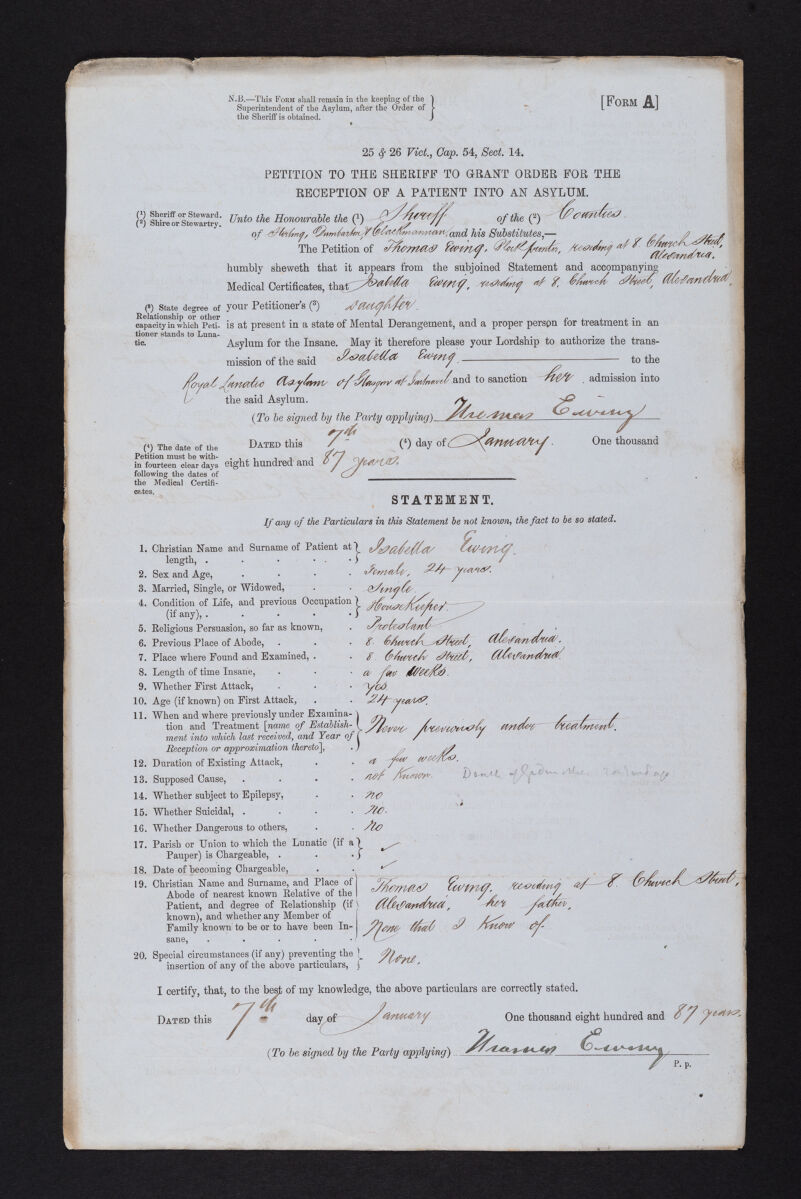 N.B.—This Form shall remain in the keeping of the
Superintendent of the Asylum, after the Order of
the Sheriff is obtained.
[Form A]
25 & 26 Vict., Cap. 54, Sect. 14.
PETITION TO THE SHERIFF TO GRANT ORDER FOR THE
RECEPTION OF A PATIENT INTO AN ASYLUM.
(1) Sheriff or Steward.
(2) Shire or Stewartry.
Unto the Honourable the (1) Sheriff of the (2) Counties
of Stirling, Dumbarton, & Clackmannan, and his Substitutes,—
The Petition of Thomas Ewing, Block printer, residing at 8. Church Street,
Alexandria.
humbly sheweth that it appears from the subjoined Statement and accompanying
Medical Certificates, that Isabella Ewing, residing at 8. Church Street, Alexandria,
(3) State degree of
Relationship or other
capacity in which Peti-
tioner stands to Luna-
tic.
your Petitioner's (3) daughter
is at present in a state of Mental Derangement, and a proper person for treatment in an
Asylum for the Insane. May it therefore please your Lordship to authorize the trans-
mission of the said Isabella Ewing. to the
Royal Lunatic Asylum of Glasgow at Gartnavel and to sanction her admission into
the said Asylum.
(To be signed by the Party applying) Thomas Ewing
(4) The date of the
Petition must be with-
in fourteen clear days
following the dates of
the Medical Certifi-
cates.
Dated this 7th (4) day of January. One thousand
eight hundred and 87 years.
STATEMENT.
If any of the Particulars in this Statement be not known, the fact to be so stated.
1. Christian Name and Surname of Patient at
length, . Isabella Ewing.
2. Sex and Age, Female, 24 years.
3. Married, Single, or Widowed, Single
4. Condition of Life, and previous Occupation
(if any), . Housekeeper
5. Religious Persuasion, so far as known, Protestant
6. Previous Place of Abode, 8. Church Street, Alexandria.
7. Place where Found and Examined, 8 Church Street, Alexandria
8. Length of time Insane, a few weeks.
9. Whether First Attack, Yes
10. Age (if known) on First Attack, 24 years.
11. When and where previously under Examina-
tion and Treatment [name of Establish-
ment into which last received, and Year of
Reception or approximation thereto], Never previously under treatment.
12. Duration of Existing Attack, a few weeks.
13. Supposed Cause, not known. Death of
14. Whether subject to Epilepsy, no
15. Whether Suicidal, . No.
16. Whether Dangerous to others, No
17. Parish or Union to which the Lunatic (if a
Pauper) is Chargeable, . ✓
18. Date of becoming Chargeable, ✓
19. Christian Name and Surname, and Place of
Abode of nearest known Relative of the
Patient, and degree of Relationship (if
known), and whether any Member of
Family known to be or to have been In-
sane,
Thomas Ewing. residing at 8. Church Street,
Alexandria, her father.
None that I know of.
20. Special circumstances (if any) preventing the
insertion of any of the above particulars, None.
I certify, that, to the best of my knowledge, the above particulars are correctly stated.
Dated this 7th day of January One thousand eight hundred and 87 years.
(To be signed by the Party applying) Thomas Ewing
P. p.